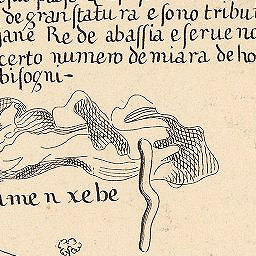 de gran statura e sono tribut
jane Re de abassia e serueno
certo numero de miara de ho
bisogni-
men xebe